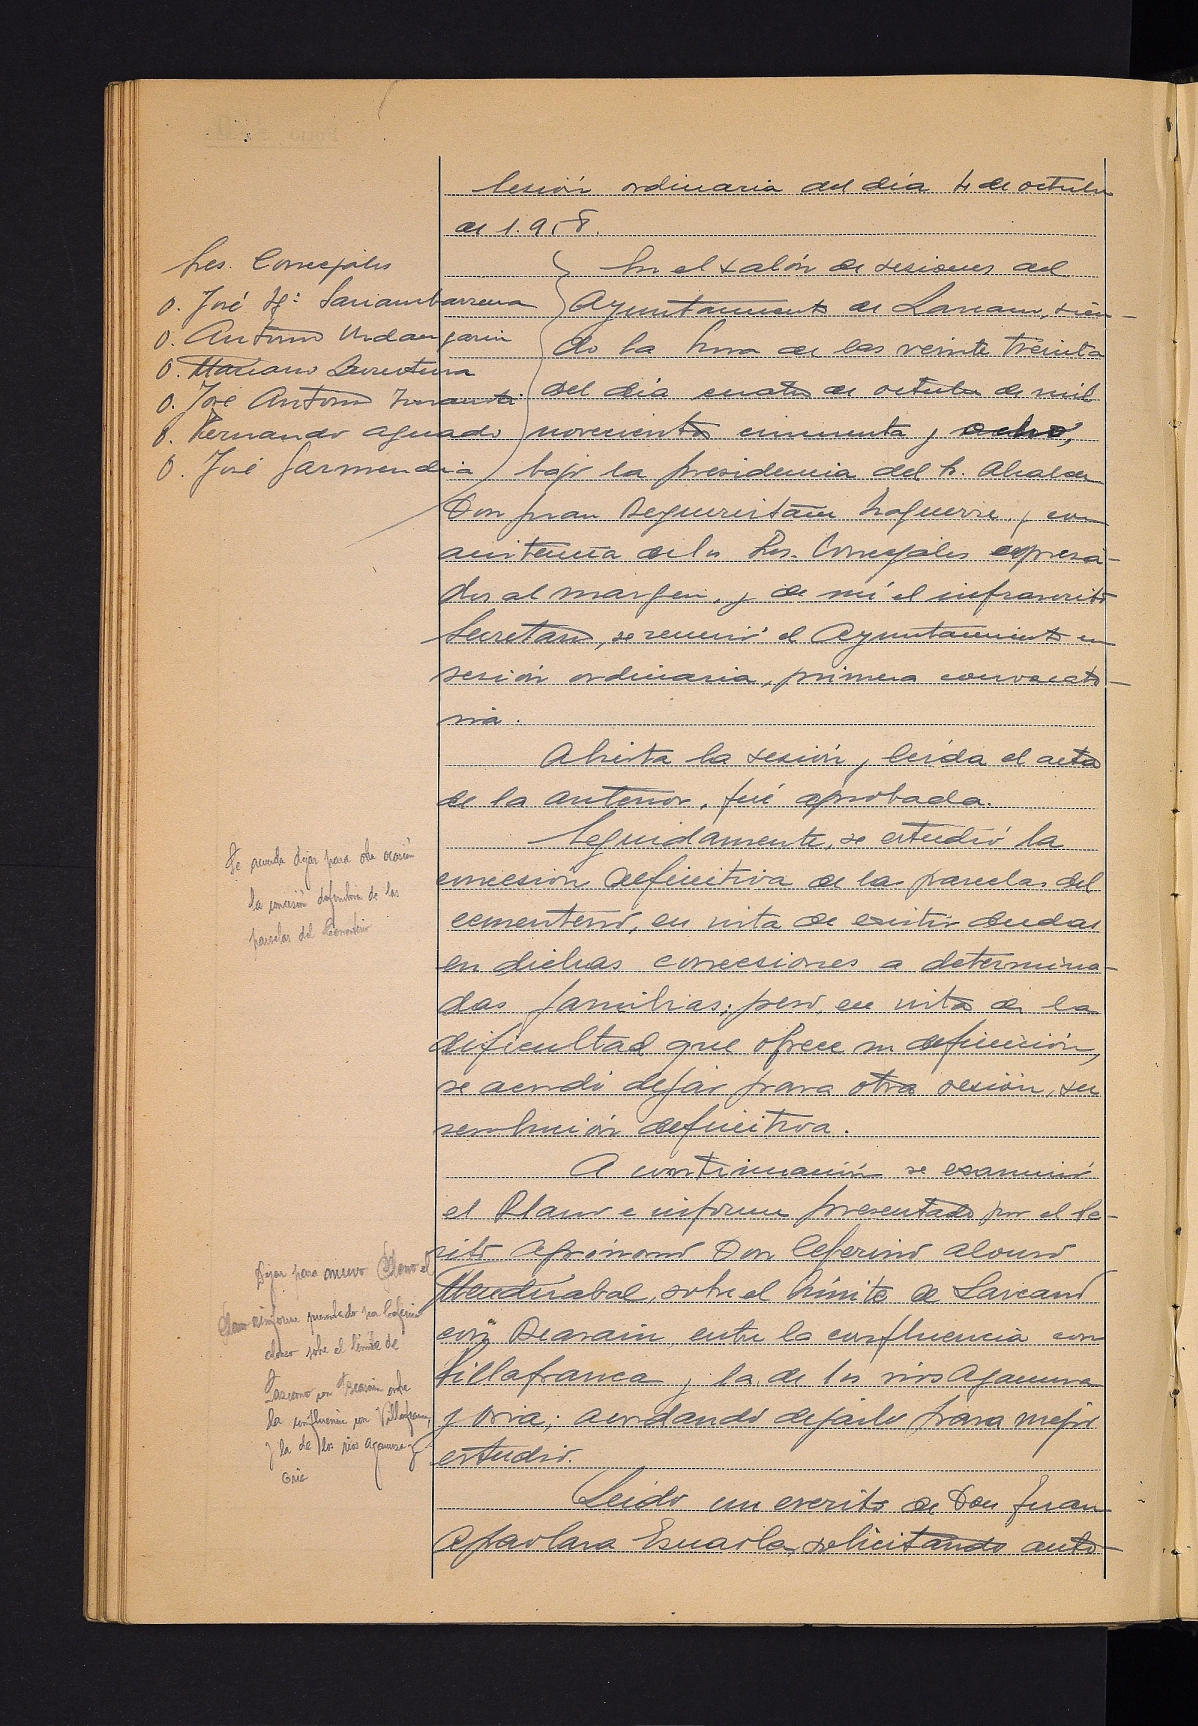 Sesión ordinaria del día 4 de octubre
de 1.958.
Sres. Concejales
D. José Mª Sarriamborrena
D. Antonio Urdangarin
D. Mariano
D. José Antonio
D. Fernando Aguado
D. José Garmendia
En el salón de sesiones del
Ayuntamiento de Lazcano, sien-
do la hora de las veinte treinta
del día cuatro de octubre de mil
novecientos cincuenta y ocho,
bajo la presidencia del Sr. Alcalde
Don Juan Izaguirre, y con
asistencia de los Sres. Concejales expresa-
dos al margen, y de mí el infrascrito
Secretario, se reunió el Ayuntamiento en
sesión ordinaria, primera convocato-
ria.
Abierta la sesión y leída el acta
de la anterior, fué aprobada.
Seguidamente, se estudió la
concesión definitiva de la parcelas del
cementerio, en vista de existir dudas
en dichas concesiones a determina-
das familias; pero, en vista de la
dificultad que ofrece su definición,
se acordó dejar para otra sesión, su
resolución definitiva.
A continuación se examinó
el Plano e informe presentado por el Pe-
rito Agrónomo Don Ceferino Alonso
Mendizabal, sobre el límite de Lazcano
con Beasain, entre la confluencia con
Villafranca y la de los rios Agaunza
y Oria; acordando dejarlo para mejor
estudio.
Leido un escrito de Don Juan
Apaolaza Esnaola, solicitando auto-
Se acuerda dejar para otra ocasión
la concesión definitiva de las
parcelas del Cementerio
Dejar para nuevo Plano el
Plano e informe presentado por Ceferino
Alonso sobre el límite de
Lazcano con Beasain entre
la confluencia con Villafranca,
y la de los rios Agaunza y
Oria